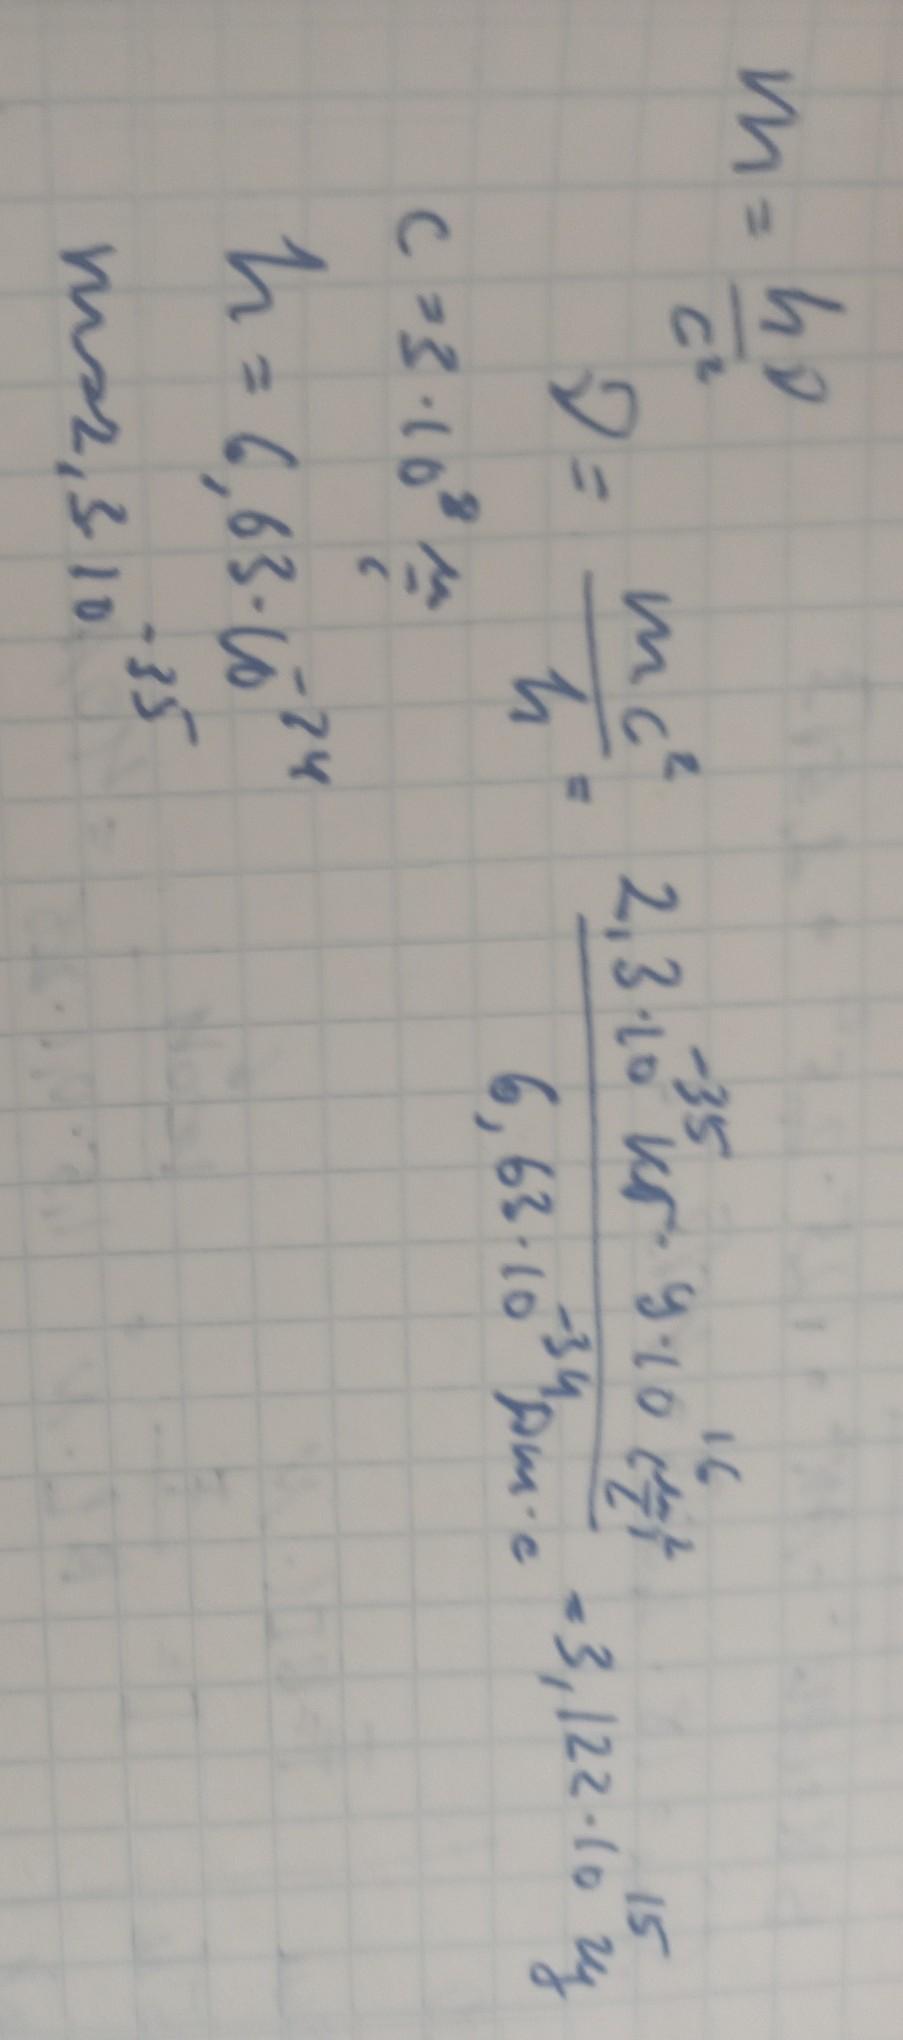 m = hν/c²
ν = mc²/h = 2,3·10⁻³⁵ кг·9·10¹⁶ (м/с)²/6,63·10⁻³⁴ Дж·с = 3,122·10¹⁵ Гц
c = 3·10⁸ м/с
h = 6,63·10⁻²⁴
m = 2,3 10⁻³⁵